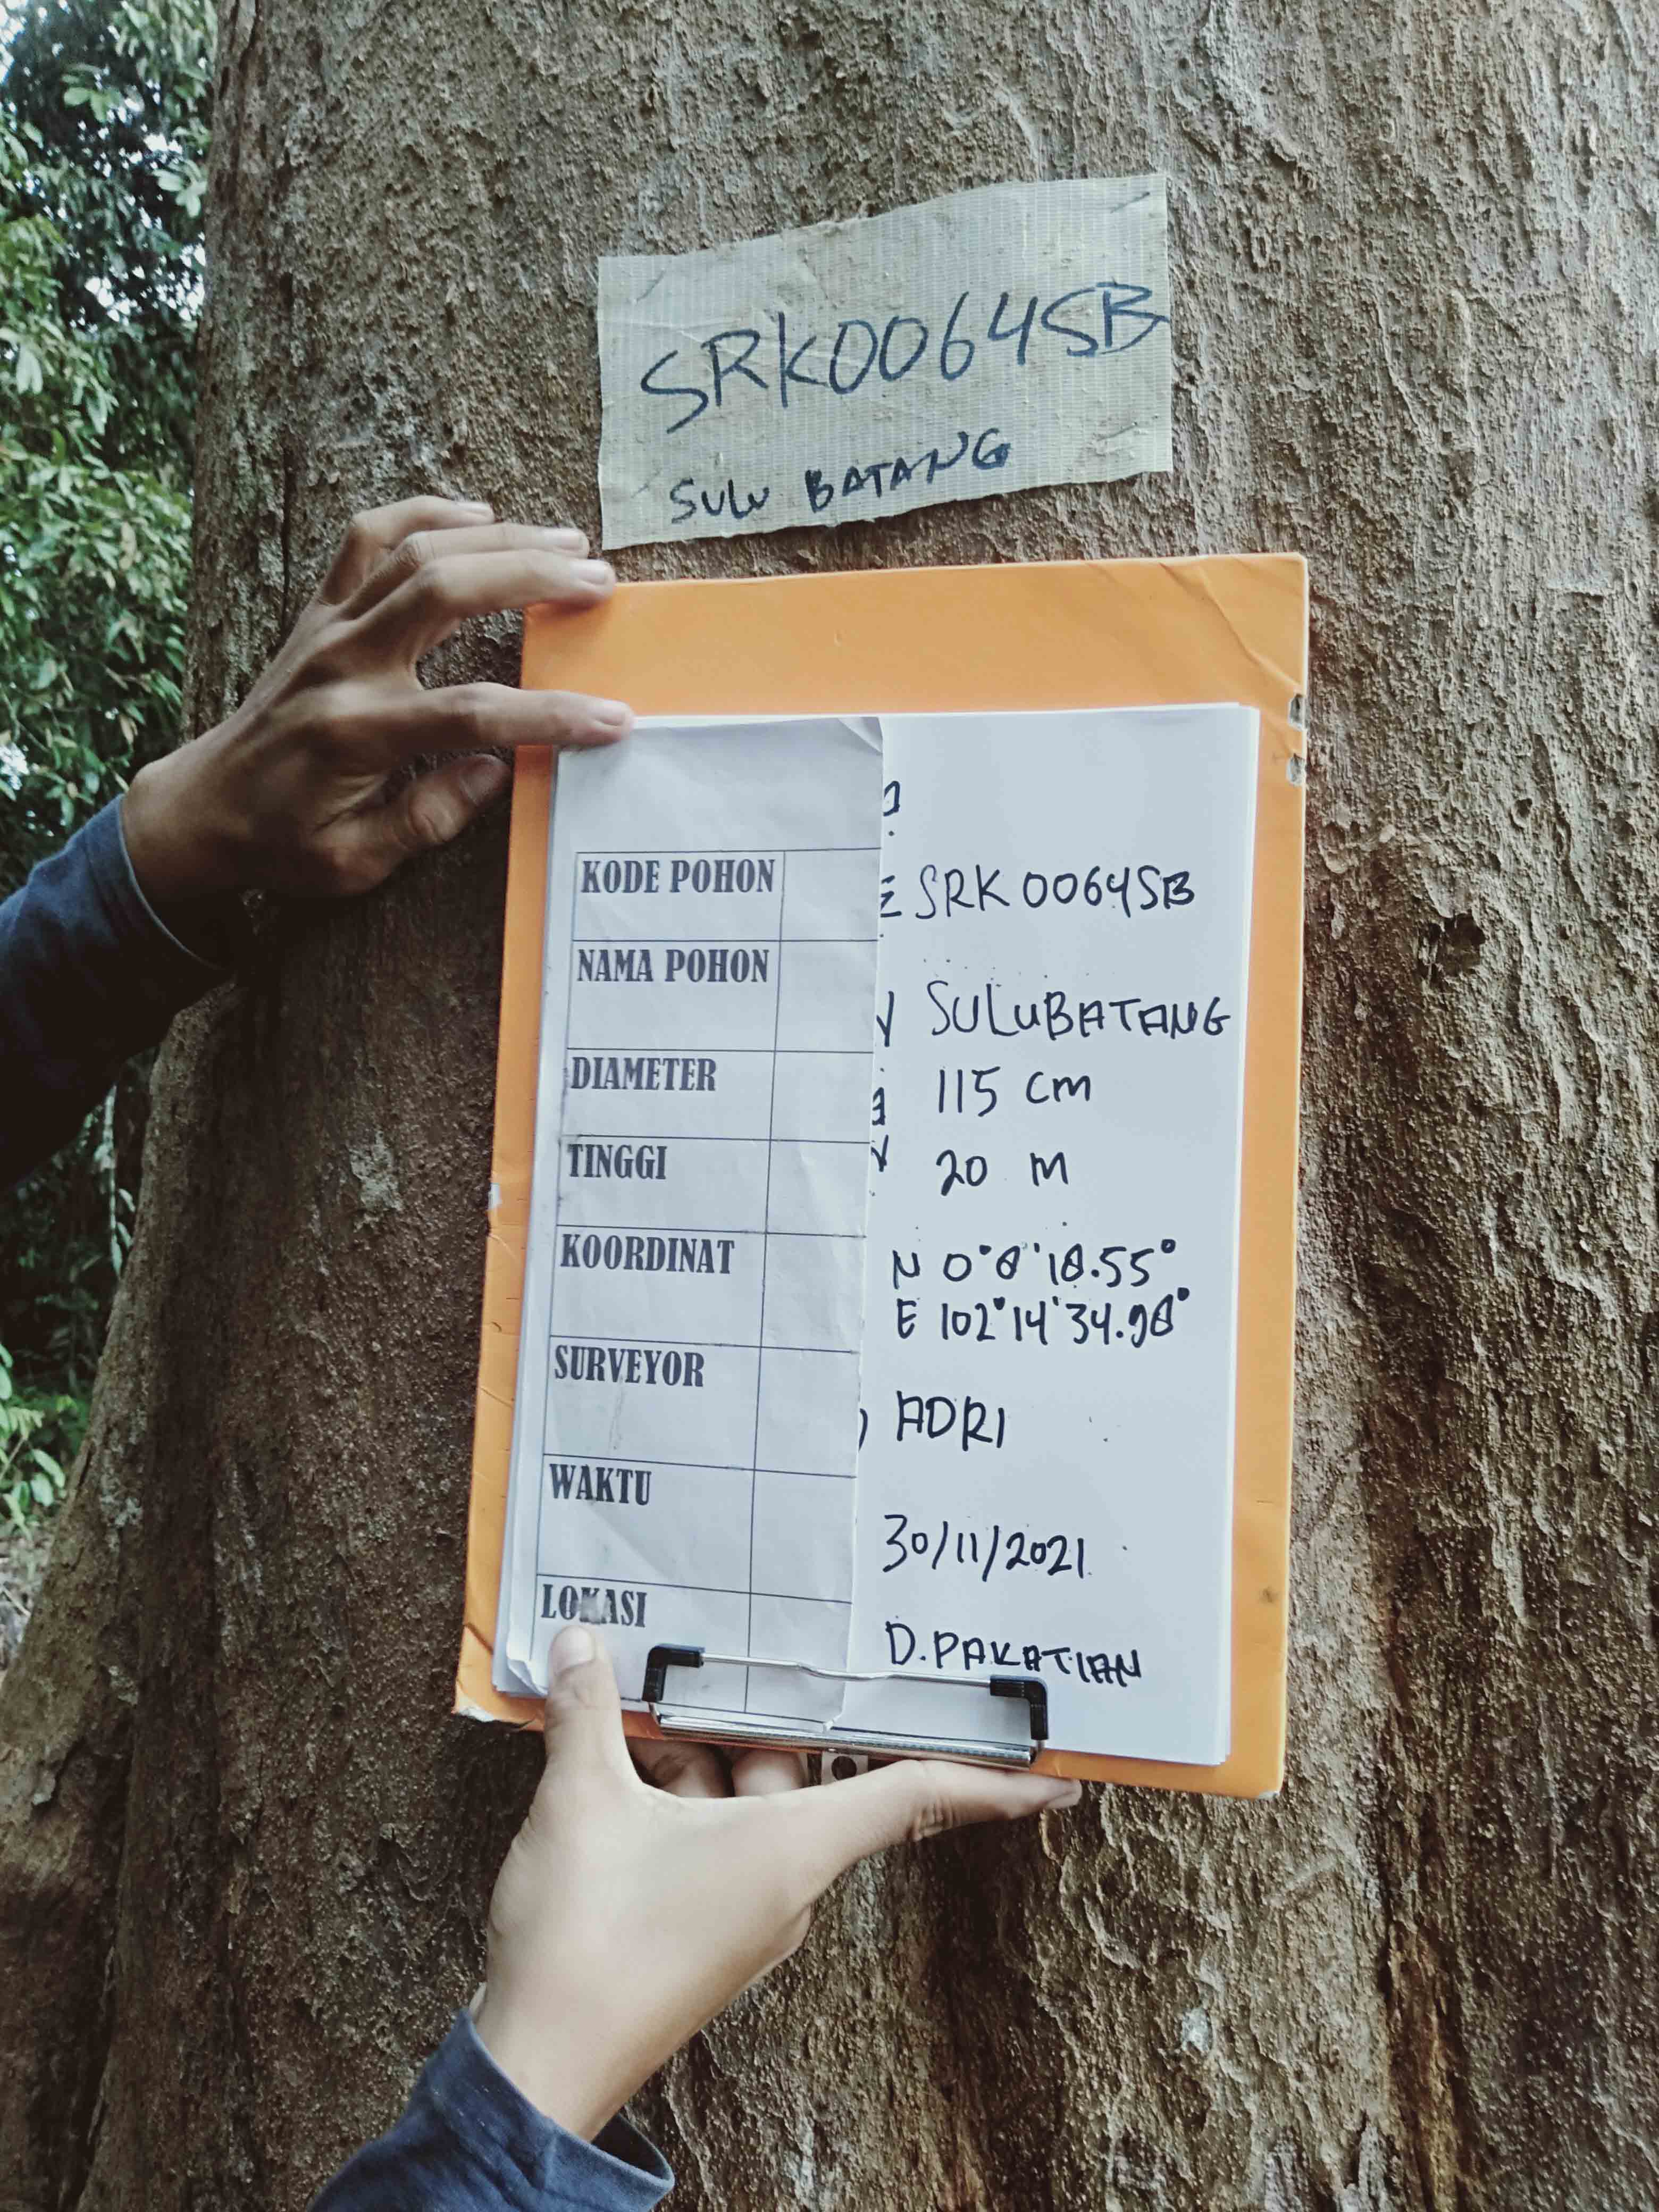 SRK0064SB
SULU BATANG
KODE POHON SRK0064SB
NAMA POHON SULUBATANG
DIAMETER 115 cm
TINGGI 20 M
KOORDINAT N 0°8'18.55°
E 102°14'34.98°
SURVEYOR ADRI
WAKTU 30/11/2021
LOKASI D.PAKATIAN